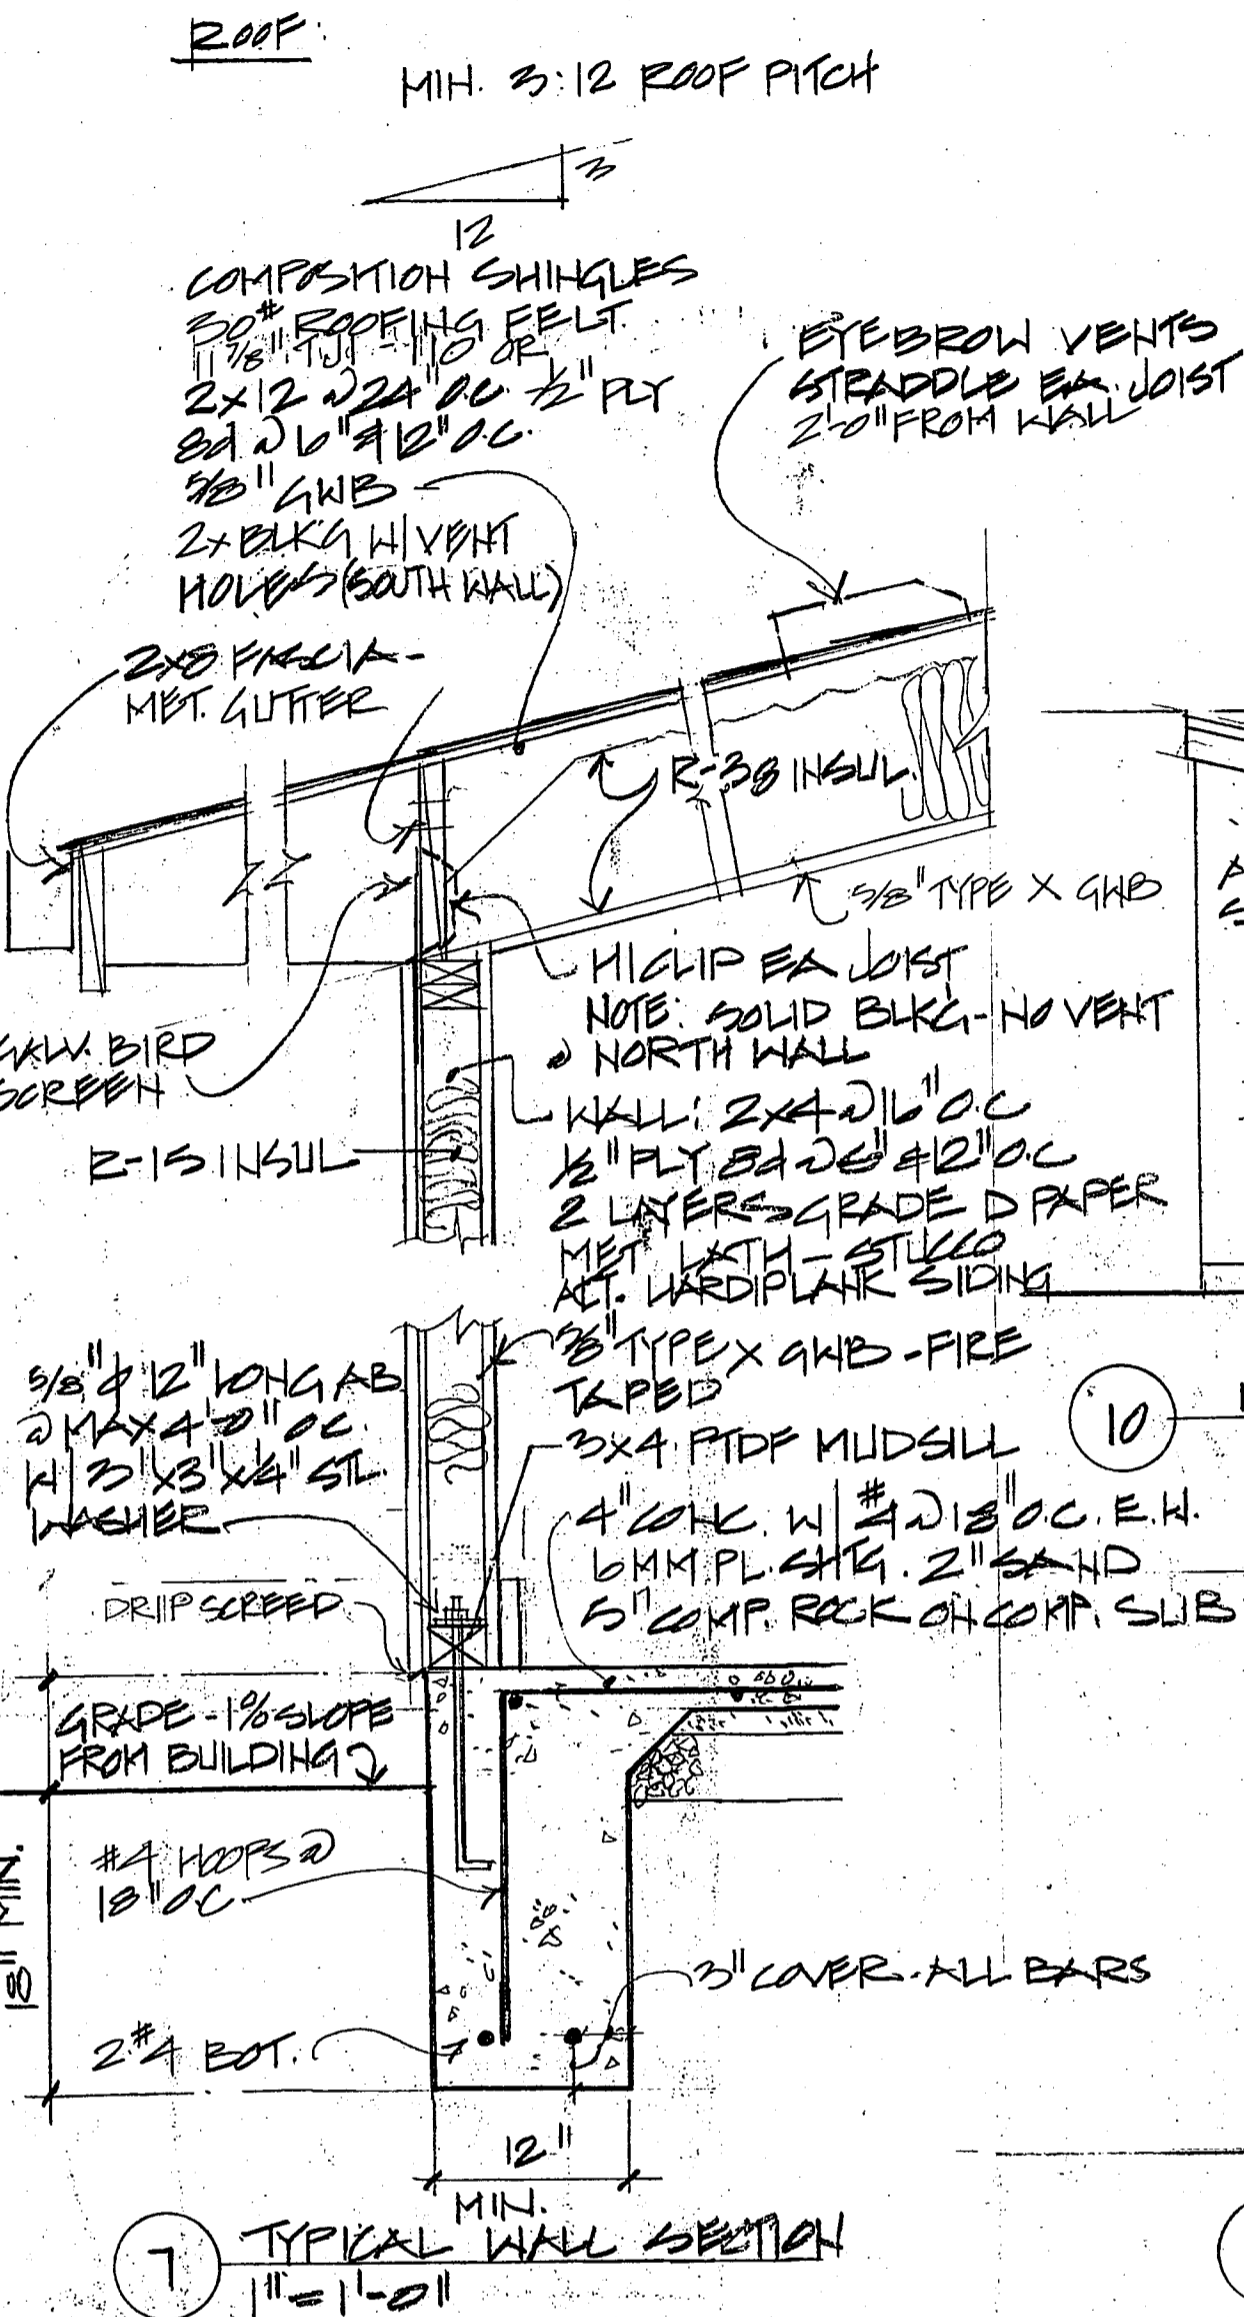 ROOF:
MIN. 3:12 ROOF PITCH
3
12
COMPOSITION SHINGLES
30# ROOFING FELT.
11 7/8" TJI - 110 OR
2x12 @ 24" O.C. 1/2" PLY
8d @ 6" & 12" O.C.
5/8" GWB
2x BLK'G W/ VENT
HOLES (SOUTH WALL)
EYEBROW VENTS
STRADDLE EA. JOIST
2'-0" FROM WALL
2x8 FASCIA
MET. GUTTER
R-38 INSUL.
5/8" TYPE X GWB
H1 CLIP EA JOIST
NOTE: SOLID BLKG - NO VENT
@ NORTH WALL
GALV. BIRD
SCREEN
WALL: 2x4 @ 16" O.C
1/2" PLY 8d @ 6" & 12" O.C
2 LAYERS GRADE D PAPER
MET LATH - STUCCO
ALT. HARDIPLANK SIDING
R-15 INSUL
5/8" TYPE X GWB - FIRE
TAPED
5/8" ϕ 12" LONG AB
@ MAX 4'-0" OC.
W/ 3"x3"x1/4" STL.
WASHER
3x4 PTDF MUDSILL
10
4" CONC. W/ #4 @ 18" O.C. E.W.
6 MM PL. SHTG. 2" SAND
5" COMP. ROCK ON COMP. SUB
DRIP SCREED
GRADE - 1% SLOPE
FROM BUILDING
18" MIN.
#4 HOOPS @
18" O.C.
3" COVER - ALL BARS
2 #4 BOT.
12"
MIN.
7 TYPICAL WALL SECTION
1" = 1'-0"